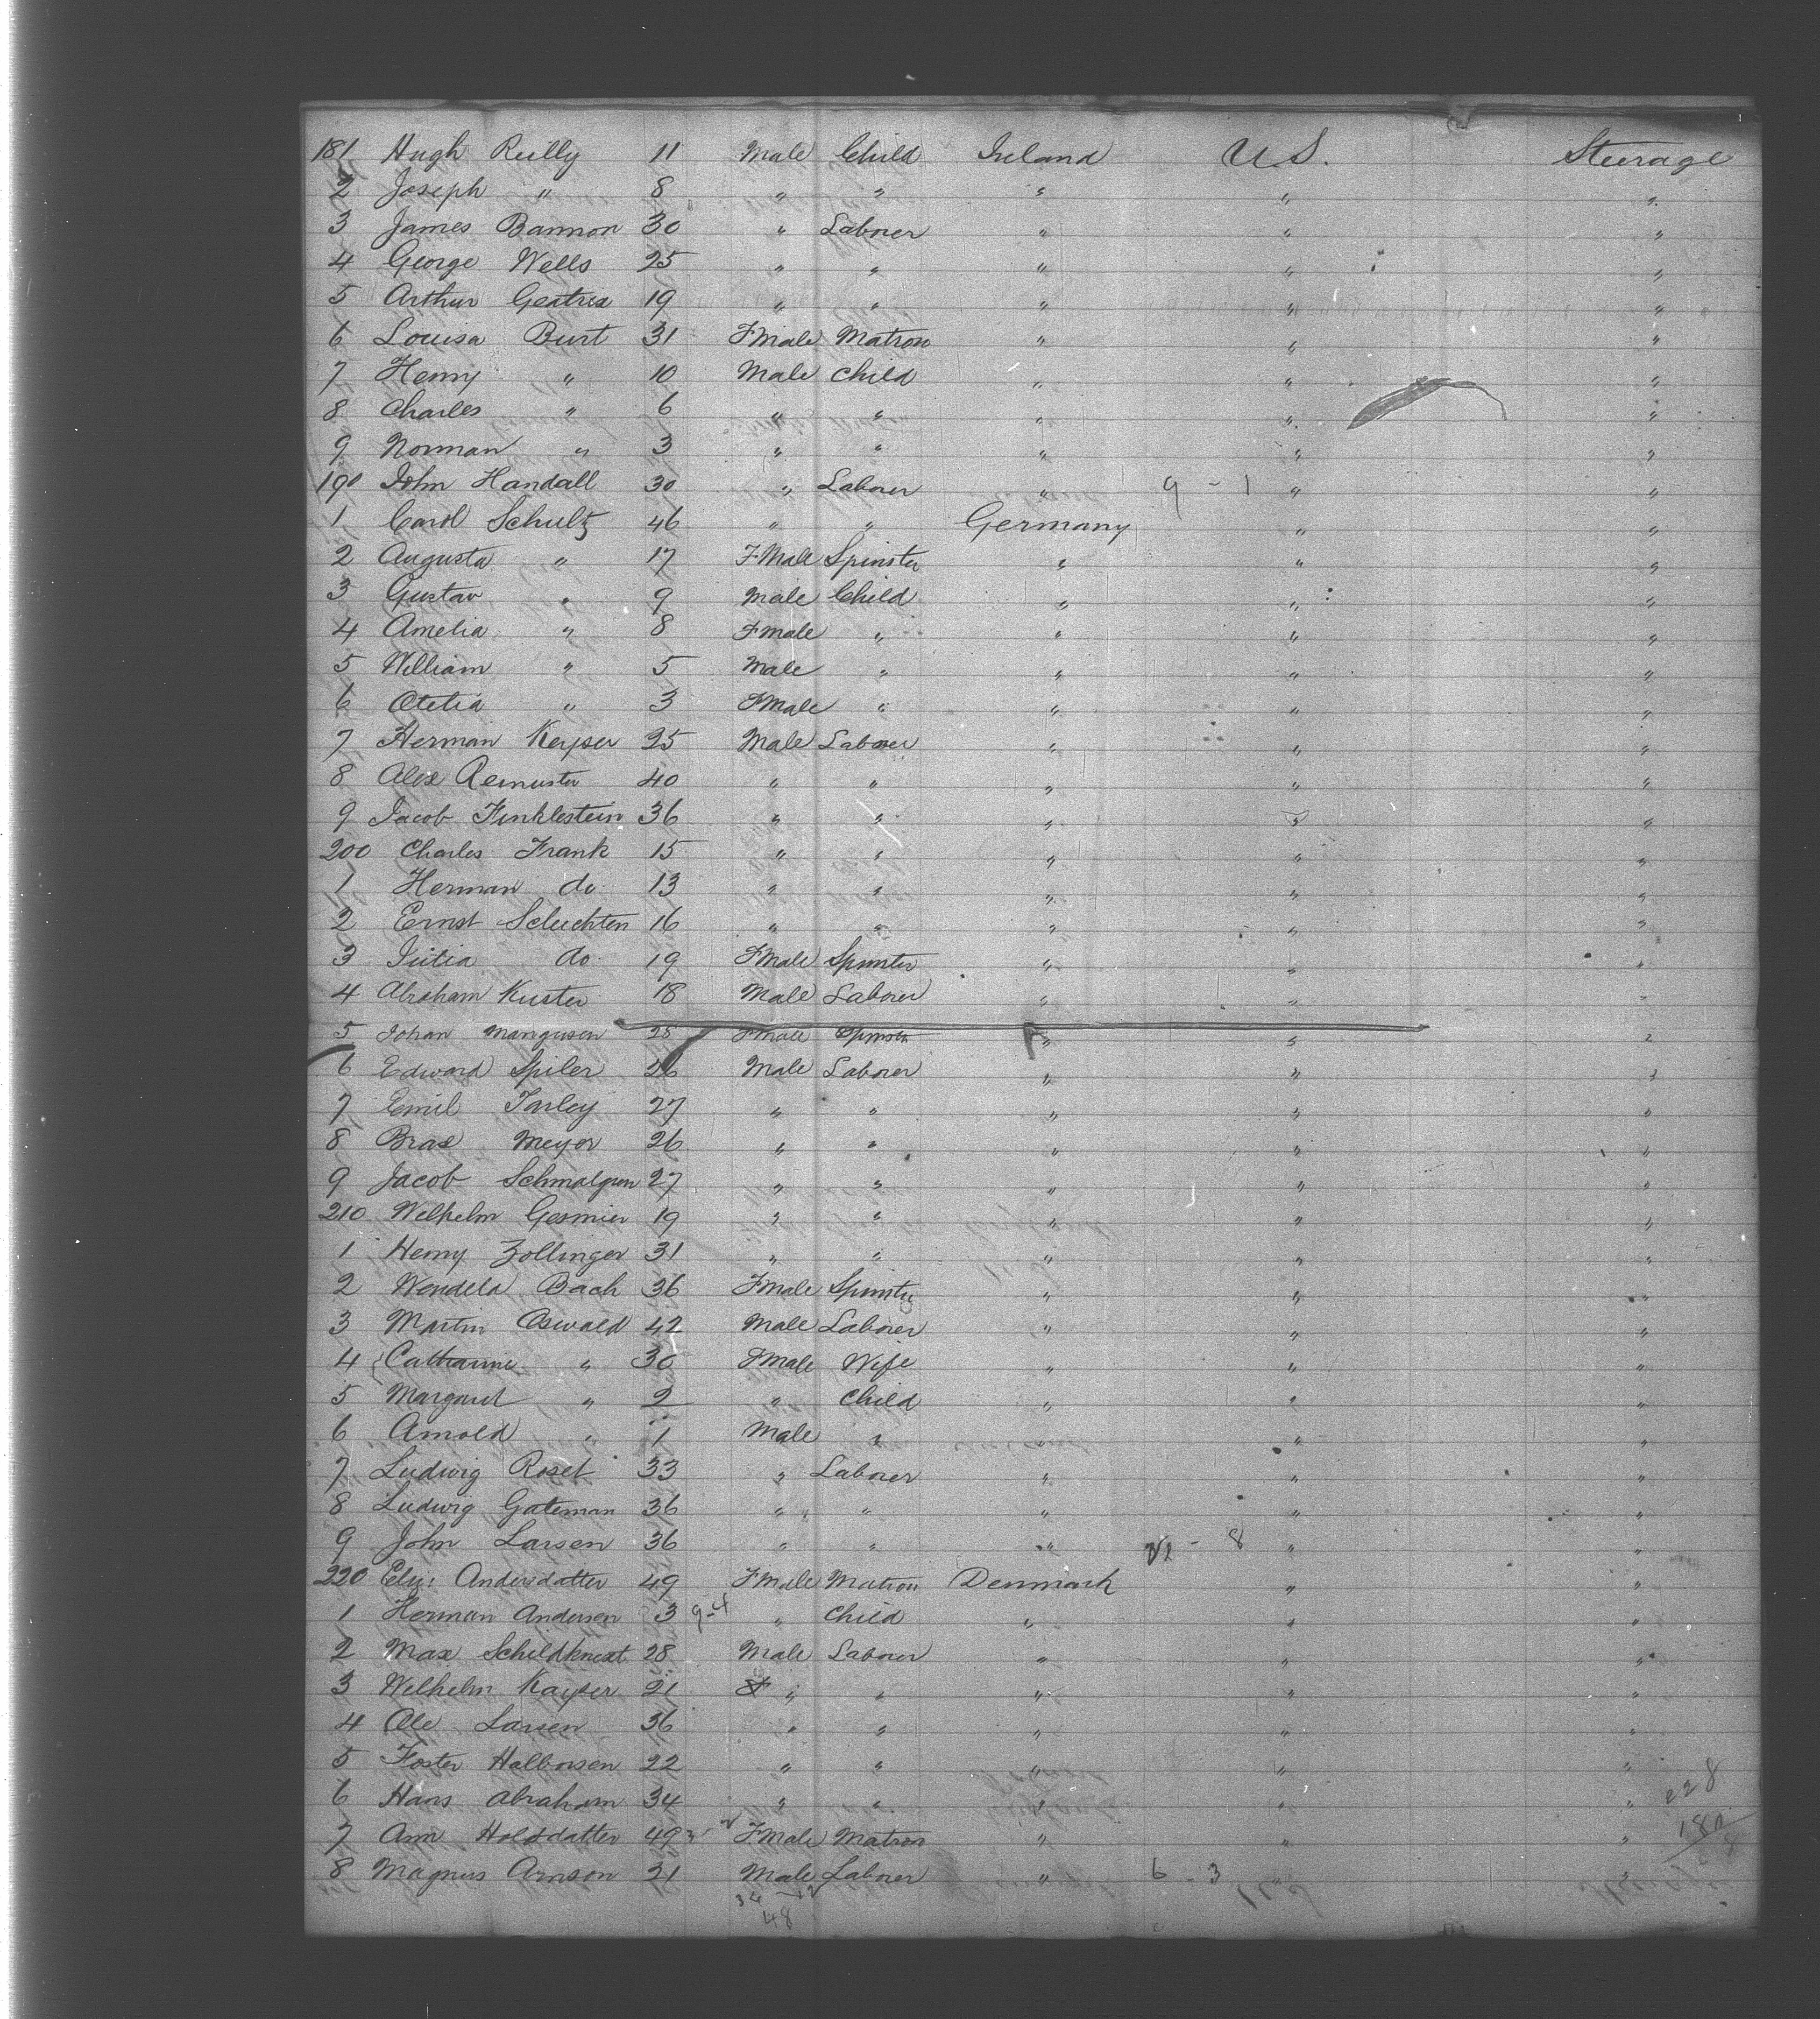 181 Hugh Reilly 11 Male Child Ireland U.S. Steerage
2 Joseph " 8 " " " " "
3 James Bannon 30 " Laborer " " "
4 George Wells 25 " " " " "
5 Arthur Geatrex 19 " " " " "
6 Louisa Burt 31 FMale Matron " " "
7 Henry " 10 Male Child " " "
8 Charles " 6 " " " " "
9 Norman " 3 " " " " "
190 John Handall 30 " Laborer " 9 - 1 " "
1 Carol Schultz 46 " " Germany " "
2 Augusta " 17 FMale Spinster " " "
3 Gustav " 9 Male Child " " "
4 Amelia " 8 Fmale " " " "
5 William " 5 Male " " " "
6 Otelia " 3 FMale " " " "
7 Herman Keyser 25 Male Laborer " " "
8 Alex Remuster 40 " " " " "
9 Jacob Finklestein 36 " " " " "
200 Charles Frank 15 " " " " "
1 Herman do 13 " " " " "
2 Ernst Scluchten 16 " " " " "
3 do 19 FMale Spinster " " "
4 Abraham Kuster 18 Male Laborer " " "
5 Johan Mangusen 28 Fmale Spinster " " "
6 Edward Spiler 26 Male Laborer " " "
7 Emil Tarley 27 " " " " "
8 Meyer 26 " " " " "
9 Jacob 27 " " " " "
210 Welhelm Gesmier 19 " " " " "
1 Henry Zollinger 31 " " " " "
2 Wendela Bach 36 Fmale Spinster " " "
3 Martin Oswald 42 Male Laborer " " "
4 Catharine " 30 FMale Wife " " "
5 Margaret " 2 " Child " " "
6 Arnold " 1 Male " " " "
7 Ludwig Rosel 33 " Laborer " " "
8 Ludwig Gateman 36 " " " " "
9 John Larsen 36 " " " - 8 " "
220 Eliz: Andersdatter 49 FMale Matron Denmark " "
1 Herman Andersen 3 9-4 " Child " " "
2 Max Schildknext 28 Male Laborer " " "
3 Welhelm Kayser 21 " " " " "
4 Ole Larsen 36 " " " " "
5 Foster Halborsen 22 " " " " "
6 Hans Abraham 34 " " " " " 228
7 Ann Holsdatter 49 FMale Matron " " " 180
8 Magnus Arnson 21 Male Laborer " 6 - 3 " "
34 - 12
48